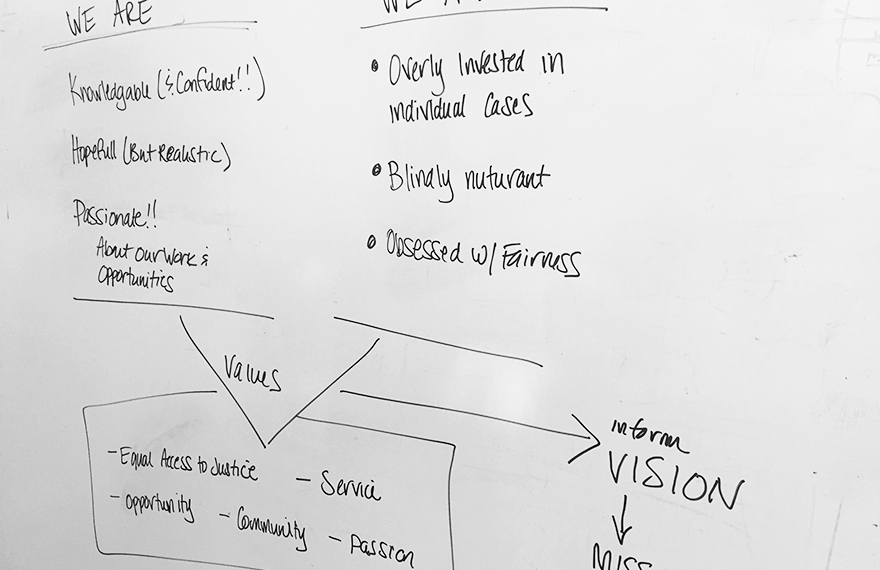 WE ARE
Knowledgable (& Confident!!)
Hopefull (But Realistic)
Passionate!!
About Our Work &
Opportunities
WE
• Overly Invested in
individual cases
• Blindly nuturant
• Obsessed w/ Fairness
Values
- Equal Access to Justice
- Service
- Opportunity
- Community
- Passion
inform
VISION
MISS